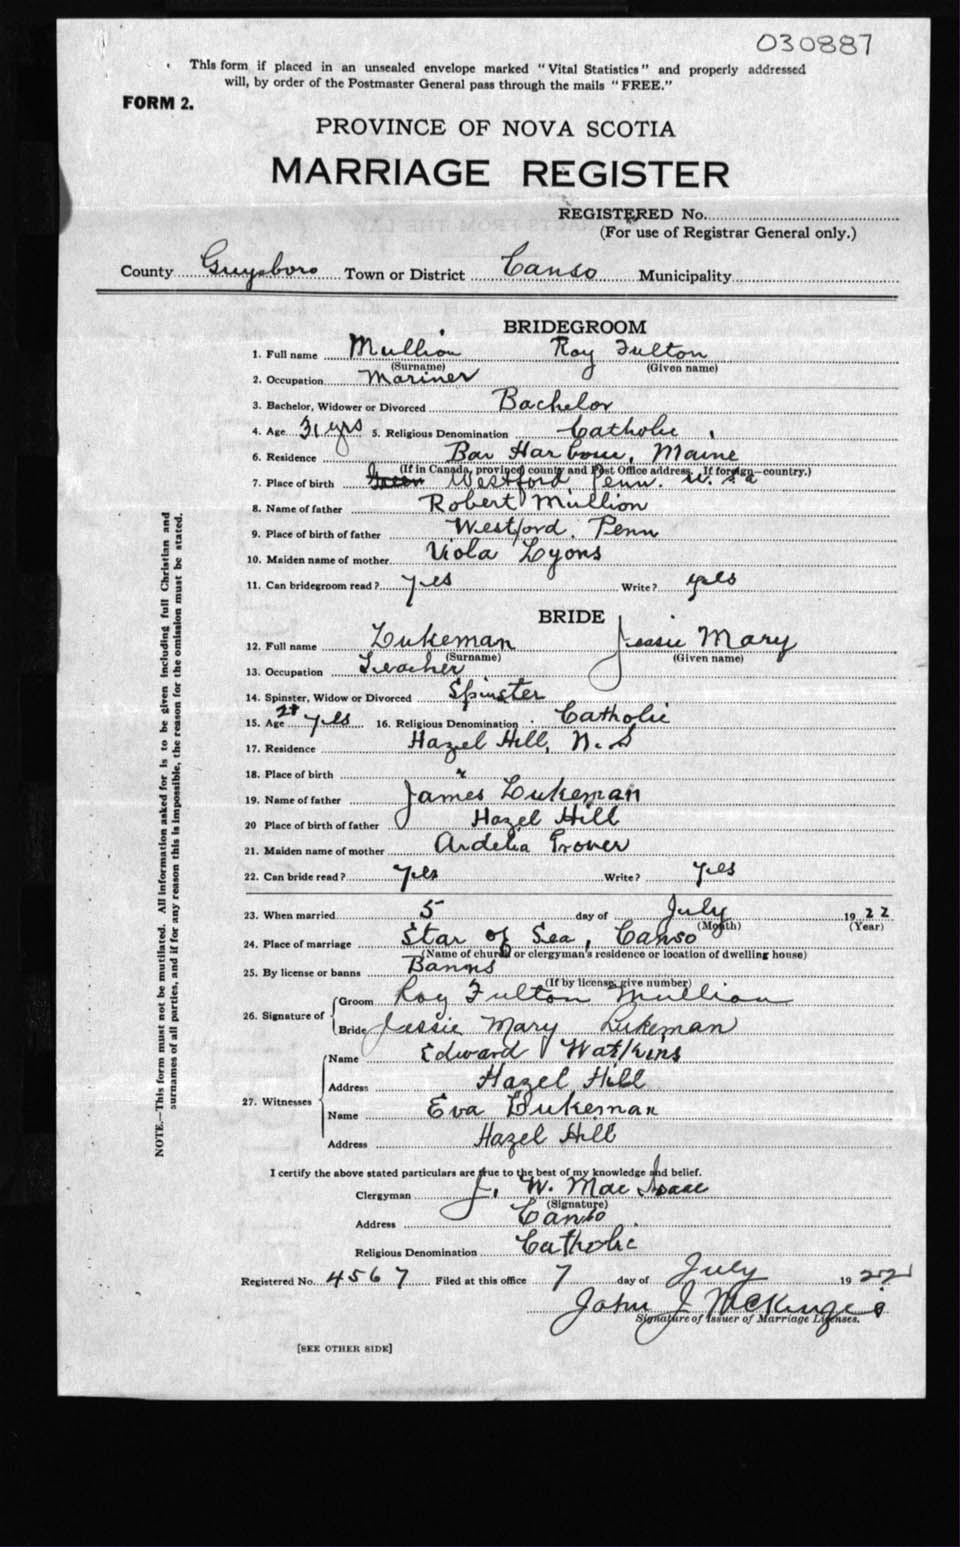 030887
This form if placed in an unsealed envelope marked "Vital Statistics" and properly addressed
will, by order of the Postmaster General pass through the mails "FREE."
FORM 2.
PROVINCE OF NOVA SCOTIA
MARRIAGE REGISTER
REGISTERED No.
(For use of Registrar General only.)
County Guysboro Town or District Canso Municipality
BRIDEGROOM
1. Full name Mullion Roy Fulton
(Surname) (Given name)
2. Occupation Mariner
3. Bachelor, Widower or Divorced Bachelor
4. Age 31 yrs 5. Religious Denomination Catholic
6. Residence Bar Harbour, Maine
(If in Canada, province, county and Post Office address. If foreign—country.)
7. Place of birth Westford Penn. U.S.a
8. Name of father Robert Mullion
9. Place of birth of father Westford, Penn
10. Maiden name of mother Viola Lyons
11. Can bridegroom read? yes Write? yes
BRIDE
12. Full name Lukeman Jessie Mary
(Surname) (Given name)
13. Occupation Teacher
14. Spinster, Widow or Divorced Spinster
15. Age yes 16. Religious Denomination Catholic
17. Residence Hazel Hill, N. S
18. Place of birth "
19. Name of father James Lukeman
20 Place of birth of father Hazel Hill
21. Maiden name of mother Ardelia Grover
22. Can bride read? Yes Write? Yes
23. When married 5 day of July 1922
(Month) (Year)
24. Place of marriage Star of Sea, Canso
(Name of church or clergyman's residence or location of dwelling house)
25. By license or banns Banns
(If by license, give number)
26. Signature of Groom Roy Fulton Mullion
Bride Jessie Mary Lukeman
27. Witnesses Name Edward Watkins
Address Hazel Hill
Name Eva Lukeman
Address Hazel Hill
I certify the above stated particulars are true to the best of my knowledge and belief.
Clergyman J. W. Mac Isaac
(Signature)
Address Canso
Religious Denomination Catholic
Registered No. 4567 Filed at this office 7 day of July 1922
John J McKenzie
Signature of Issuer of Marriage Licenses.
[SEE OTHER SIDE]
NOTE.—This form must not be mutilated. All information asked for is to be given including full Christian and
surnames of all parties, and if for any reason this is impossible, the reason for the omission must be stated.